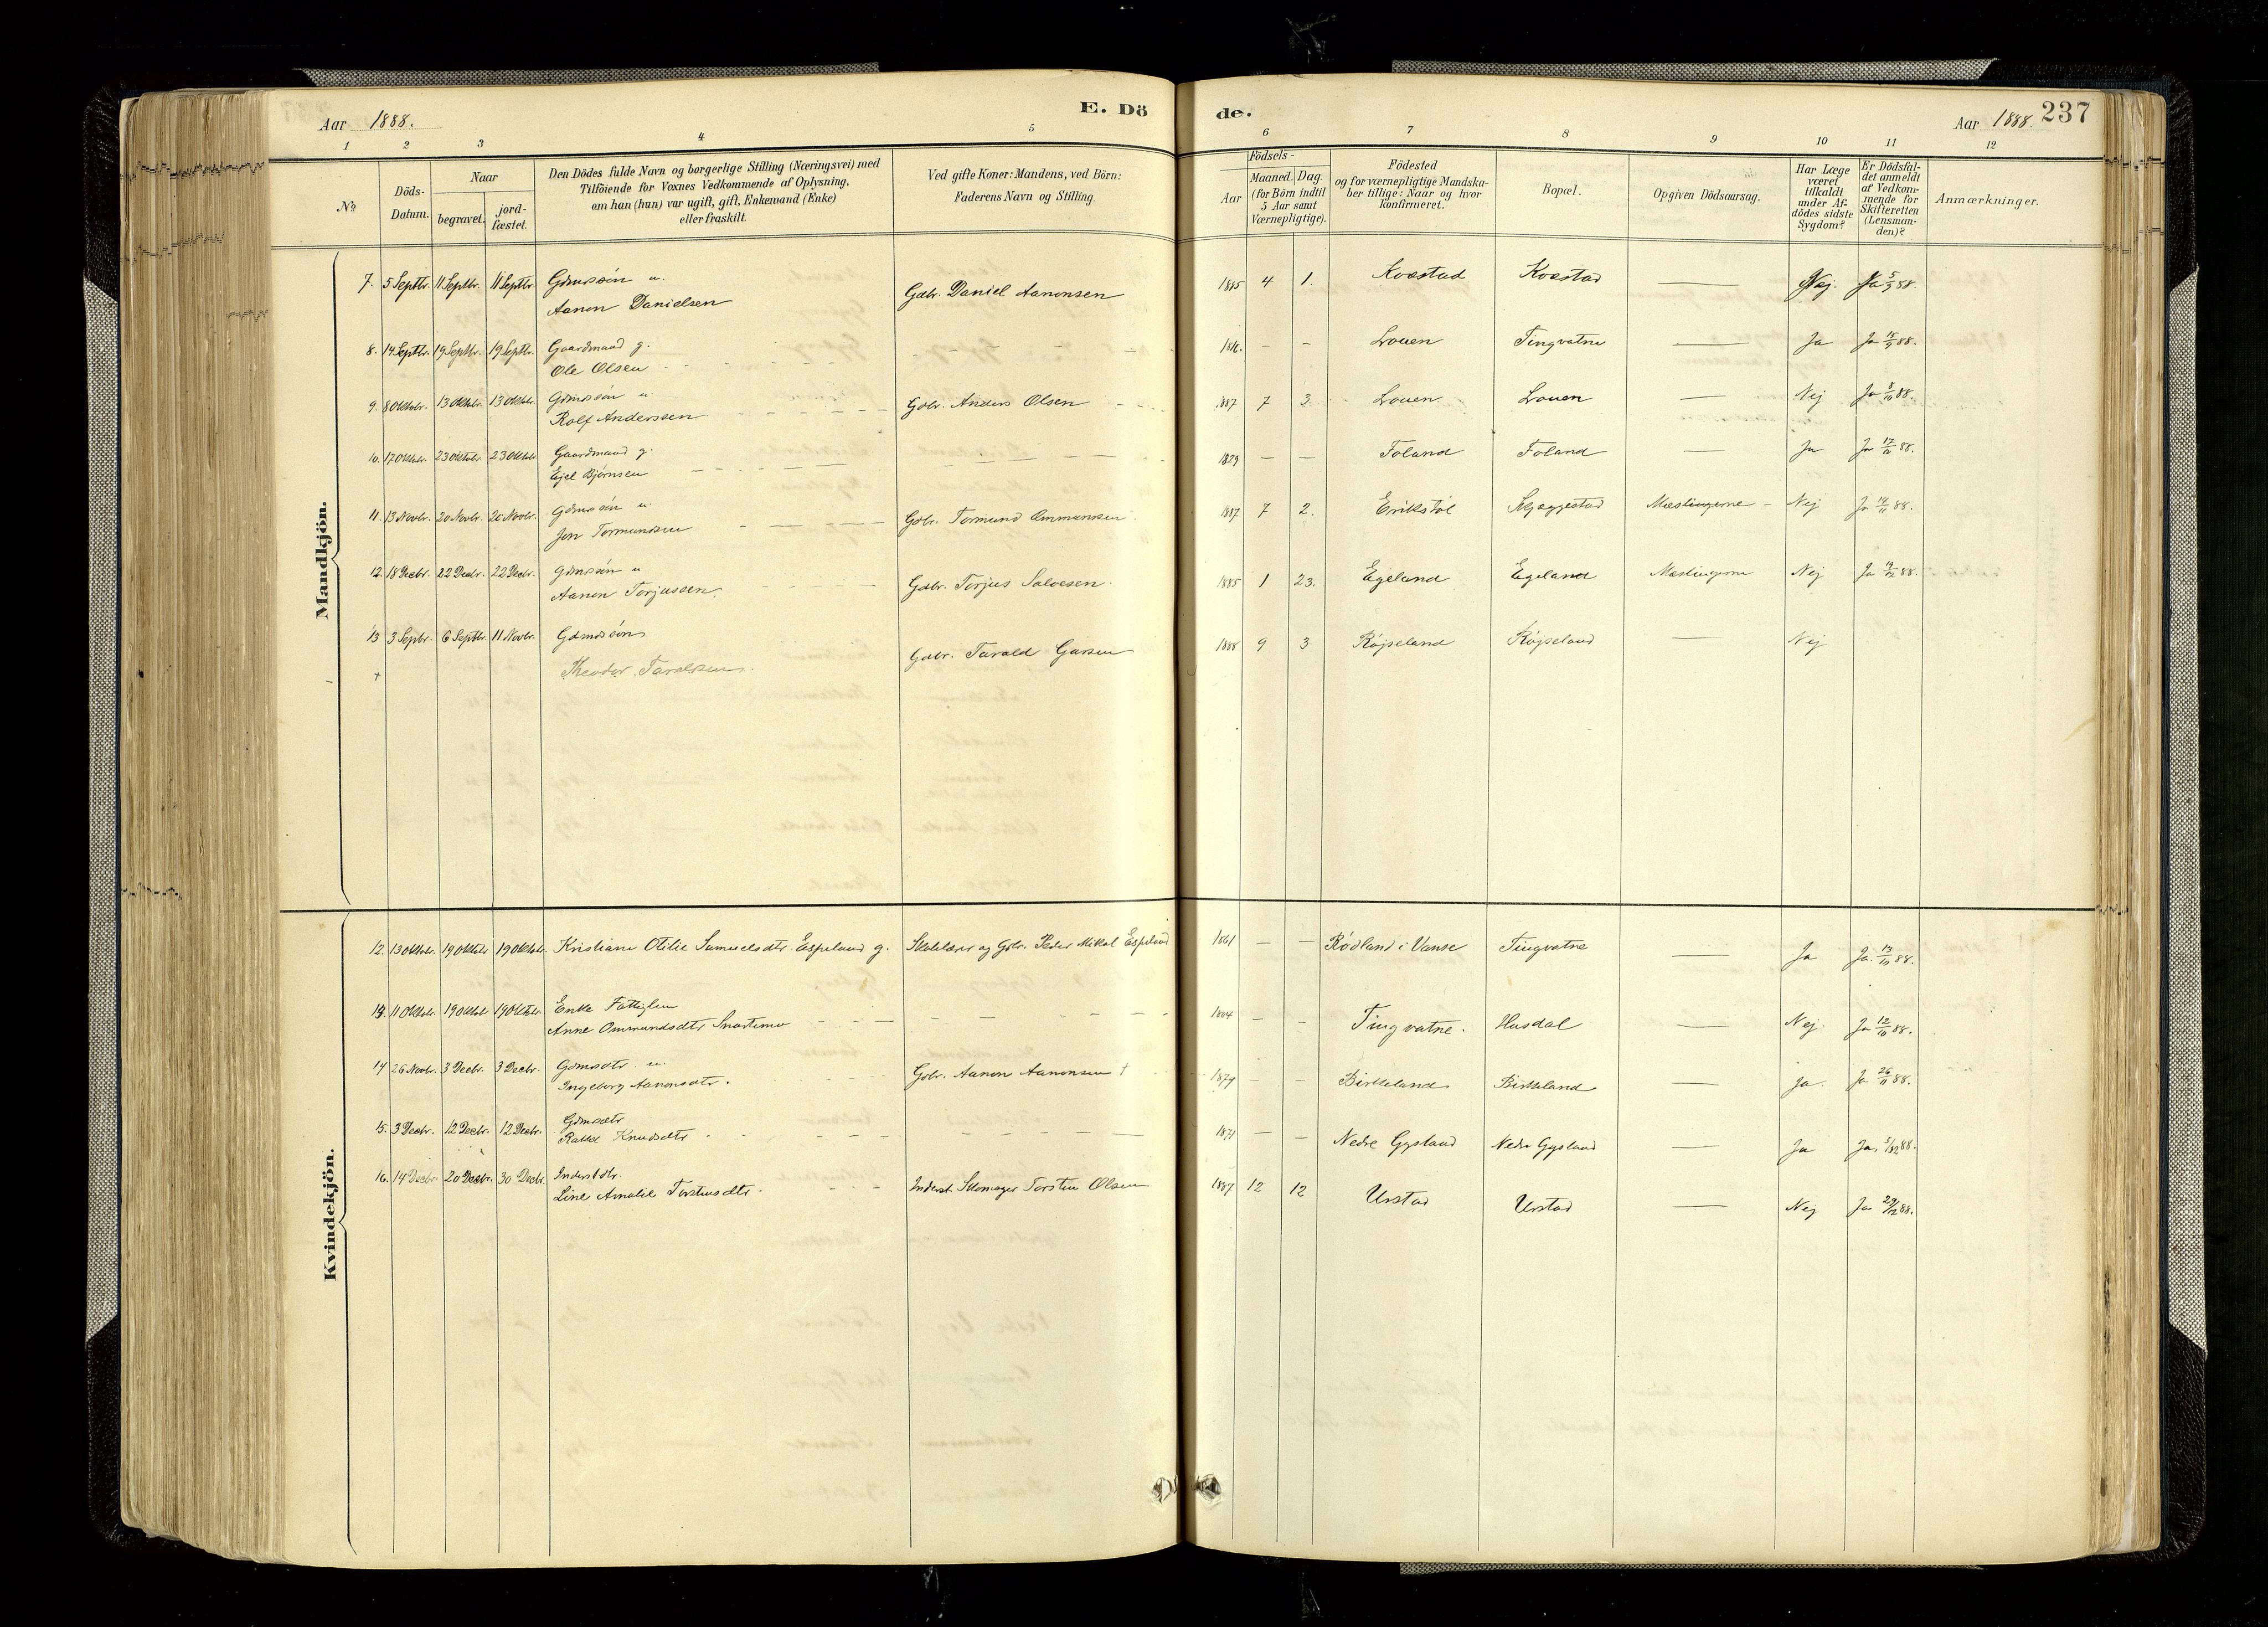 Aar 1888.
E. Dö
de.
Aar 1888.
237
1 2 3 4 5 6 7 8 9 10 11 12
No
Döds-
Datum.
Naar
begravet.
jord-
fæstet.
Den Dödes fulde Navn og borgerlige Stilling (Næringsvei) med
Tilföiende for Voxnes Vedkommende af Oplysning,
om han (hun) var ugift, gift, Enkemand (Enke)
eller fraskilt.
Ved gifte Koner: Mandens, ved Börn:
Faderens Navn og Stilling.
Födsels-
Aar
Maaned. Dag.
(for Börn indtil
5 Aar samt
Værnepligtige).
Födested
og for værnepligtige Mandska-
ber tillige: Naar og hvor
konfirmeret.
Bopæl.
Opgiven Dödsaarsag.
Har Læge
været
tilkaldt
under Af-
dödes sidste
Sygdom?
Er Dödsfal-
det anmeldt
af Vedkom-
mende for
Skifteretten
(Lensman-
den)?
Anmærkninger.
Mandkjön.
7. 5 Septbr. 11 Septbr. 11 Septbr. Gdmssön u.
Aanon Danielsen Gdbr. Daniel Aanonsen 1885 4 1. Kvæstad Kvæstad Nej. Ja 5/9 88.
8. 14 Septbr. 19 Septbr. 19 Septbr. Gaardmand g.
Ole Olsen 1816. - - Louen Tingvatne Ja Ja 15/9 88.
9. 8 Oktobr. 13 Oktobr. 13 Oktobr. Gdmssön u
Rolf Anderssen Gdbr. Anders Olsen 1887 7 3. Louen Louen Nej Ja 8/10 88.
10. 17 Oktobr. 23 Oktobr. 23 Oktobr. Gaardmand g.
Ejel Bjørnsen 1829 - - Foland Foland Ja Ja 17/10 88.
11. 13 Novbr. 20 Novbr. 20 Novbr. Gdmssön u.
Jon Tormundsen Gdbr. Tormund Ommunsen 1887 7 2. Erikstøl Skjeggestad Mæslingerne Nej Ja 14/11 88.
12. 18 Decbr. 22 Decbr. 22 Decbr. Gdmssön u
Aanon Torjussen. Gdbr. Torjus Salvesen. 1885 1 23. Egeland Egeland Mæslingerne Nej Ja 19/12 88.
13 3 Septbr. 6 Septbr. 11 Novbr. Gdmdssön
+ Theodor Taraldsen. Gdbr. Tarald Garsen 1888 9 3 Röjseland Röjseland Nej
Kvindekjön.
12. 13 Oktobr. 19 Oktobr 19 Oktobr. Kristiane Otilie Samuelsdtr. Espeland g. Skolelærer og Gdbr. Peder Mikal Espeland 1861 - - Rödland i Vanse Tingvatne Ja Ja. 13/10 88.
13. 11 Oktobr. 19 Oktobr 19 Oktobr. Enke Fattiglem
Anne Ommundsdtr Snartemo 1804 - - Tingvatne. Husdal Nej Ja 12/10 88.
14 26 Novbr. 3 Decbr. 3 Decbr. Gdmsdtr. u.
Ingeborg Aanonsdtr. Gdbr. Aanon Aanonsen + 1879 - - Birkeland Birkeland Ja. Ja 26/11 88.
15. 3 Decbr. 12 Decbr. 12 Decbr. Gdmsdtr
Rakel Knudsdtr 1871 - - Nedre Gysland Nedre Gysland Ja Ja. 5/12 88.
16. 14 Decbr. 20 Decbr. 30 Decbr. Inderstdtr.
Line Amalie Torstensdtr. Inderst. Skomager Torsten Olsen 1887 12 12 Urstad Urstad Nej Ja 29/12 88.